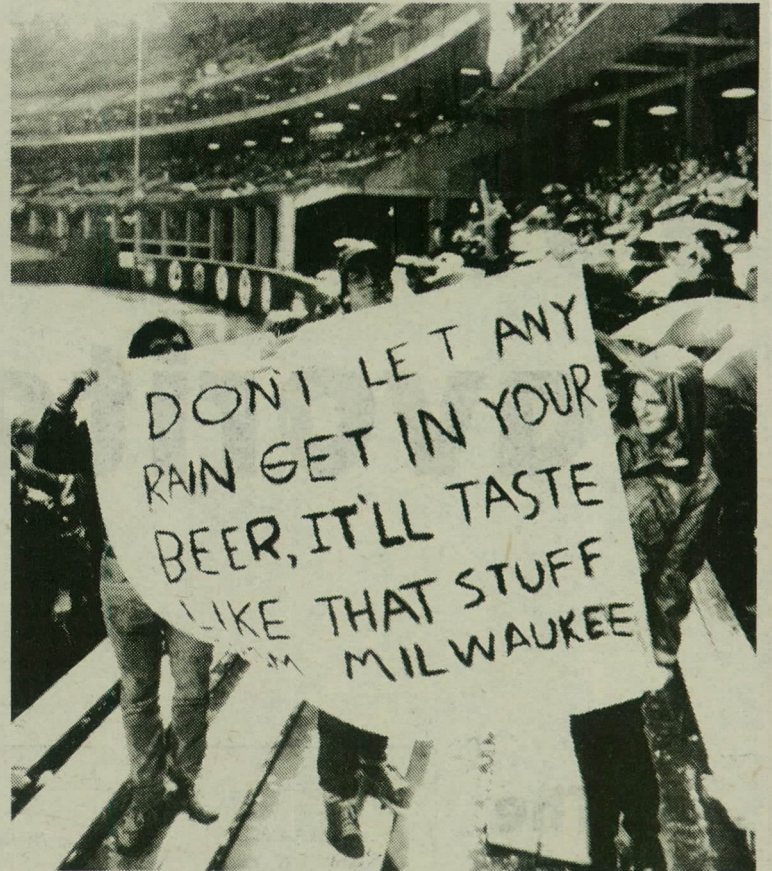 DON'T LET ANY
RAIN GET IN YOUR
BEER, IT'LL TASTE
LIKE THAT STUFF
MILWAUKEE